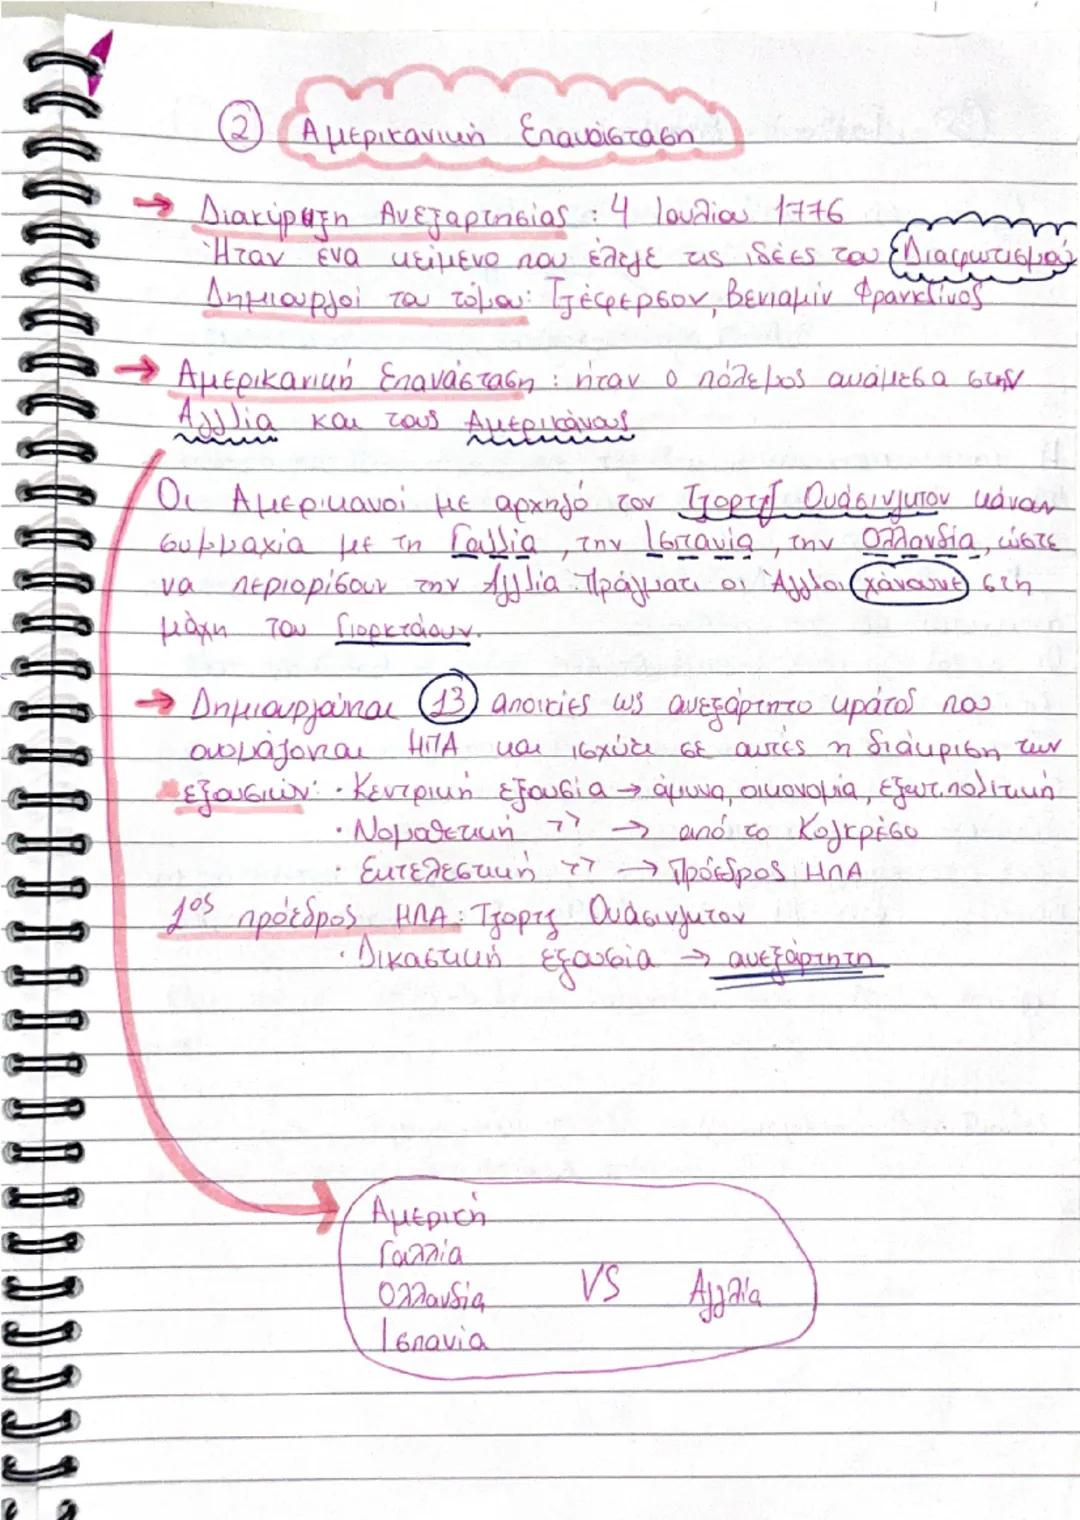 ② Αμερικανική Επανάσταση
→ Διακύρηξη Ανεξαρτησίας : 4 Ιουλίου 1776
Ήταν ένα κείμενο που έλεγε τις ιδέες του Διαφωτισμού
Δημιουργοί του τόμου: Τζέφερσον, Βενιαμίν Φρανκλίνος
→ Αμερικανική Επανάσταση : ήταν ο πόλεμος ανάμεσα στην
Αγγλία και τους Αμερικάνους
Οι Αμερικανοί με αρχηγό τον Τζορτζ Ουάσινγκτον κάναν
συμμαχία με τη Γαλλία, την Ισπανία, την Ολλανδία, ώστε
να περιορίσουν την Αγγλία. Πράγματι οι Άγγλοι χάνουνε στη
μάχη του Γιορκτάουν.
→ Δημιουργούνται 13 αποικίες ως ανεξάρτητο κράτος που
ονομάζονται ΗΠΑ και ισχύει σε αυτές η διάκριση των
εξουσιών: · Κεντρική εξουσία → άμυνα, οικονομία, εξωτ. πολιτική
· Νομοθετική 〃 → από το Κογκρέσο
· Εκτελεστική 〃 → Πρόεδρος ΗΠΑ
1ος πρόεδρος ΗΠΑ: Τζορτζ Ουάσινγκτον
· Δικαστική εξουσία → ανεξάρτητη
Αμερική
Γαλλία
Ολλανδία VS Αγγλία
Ισπανία